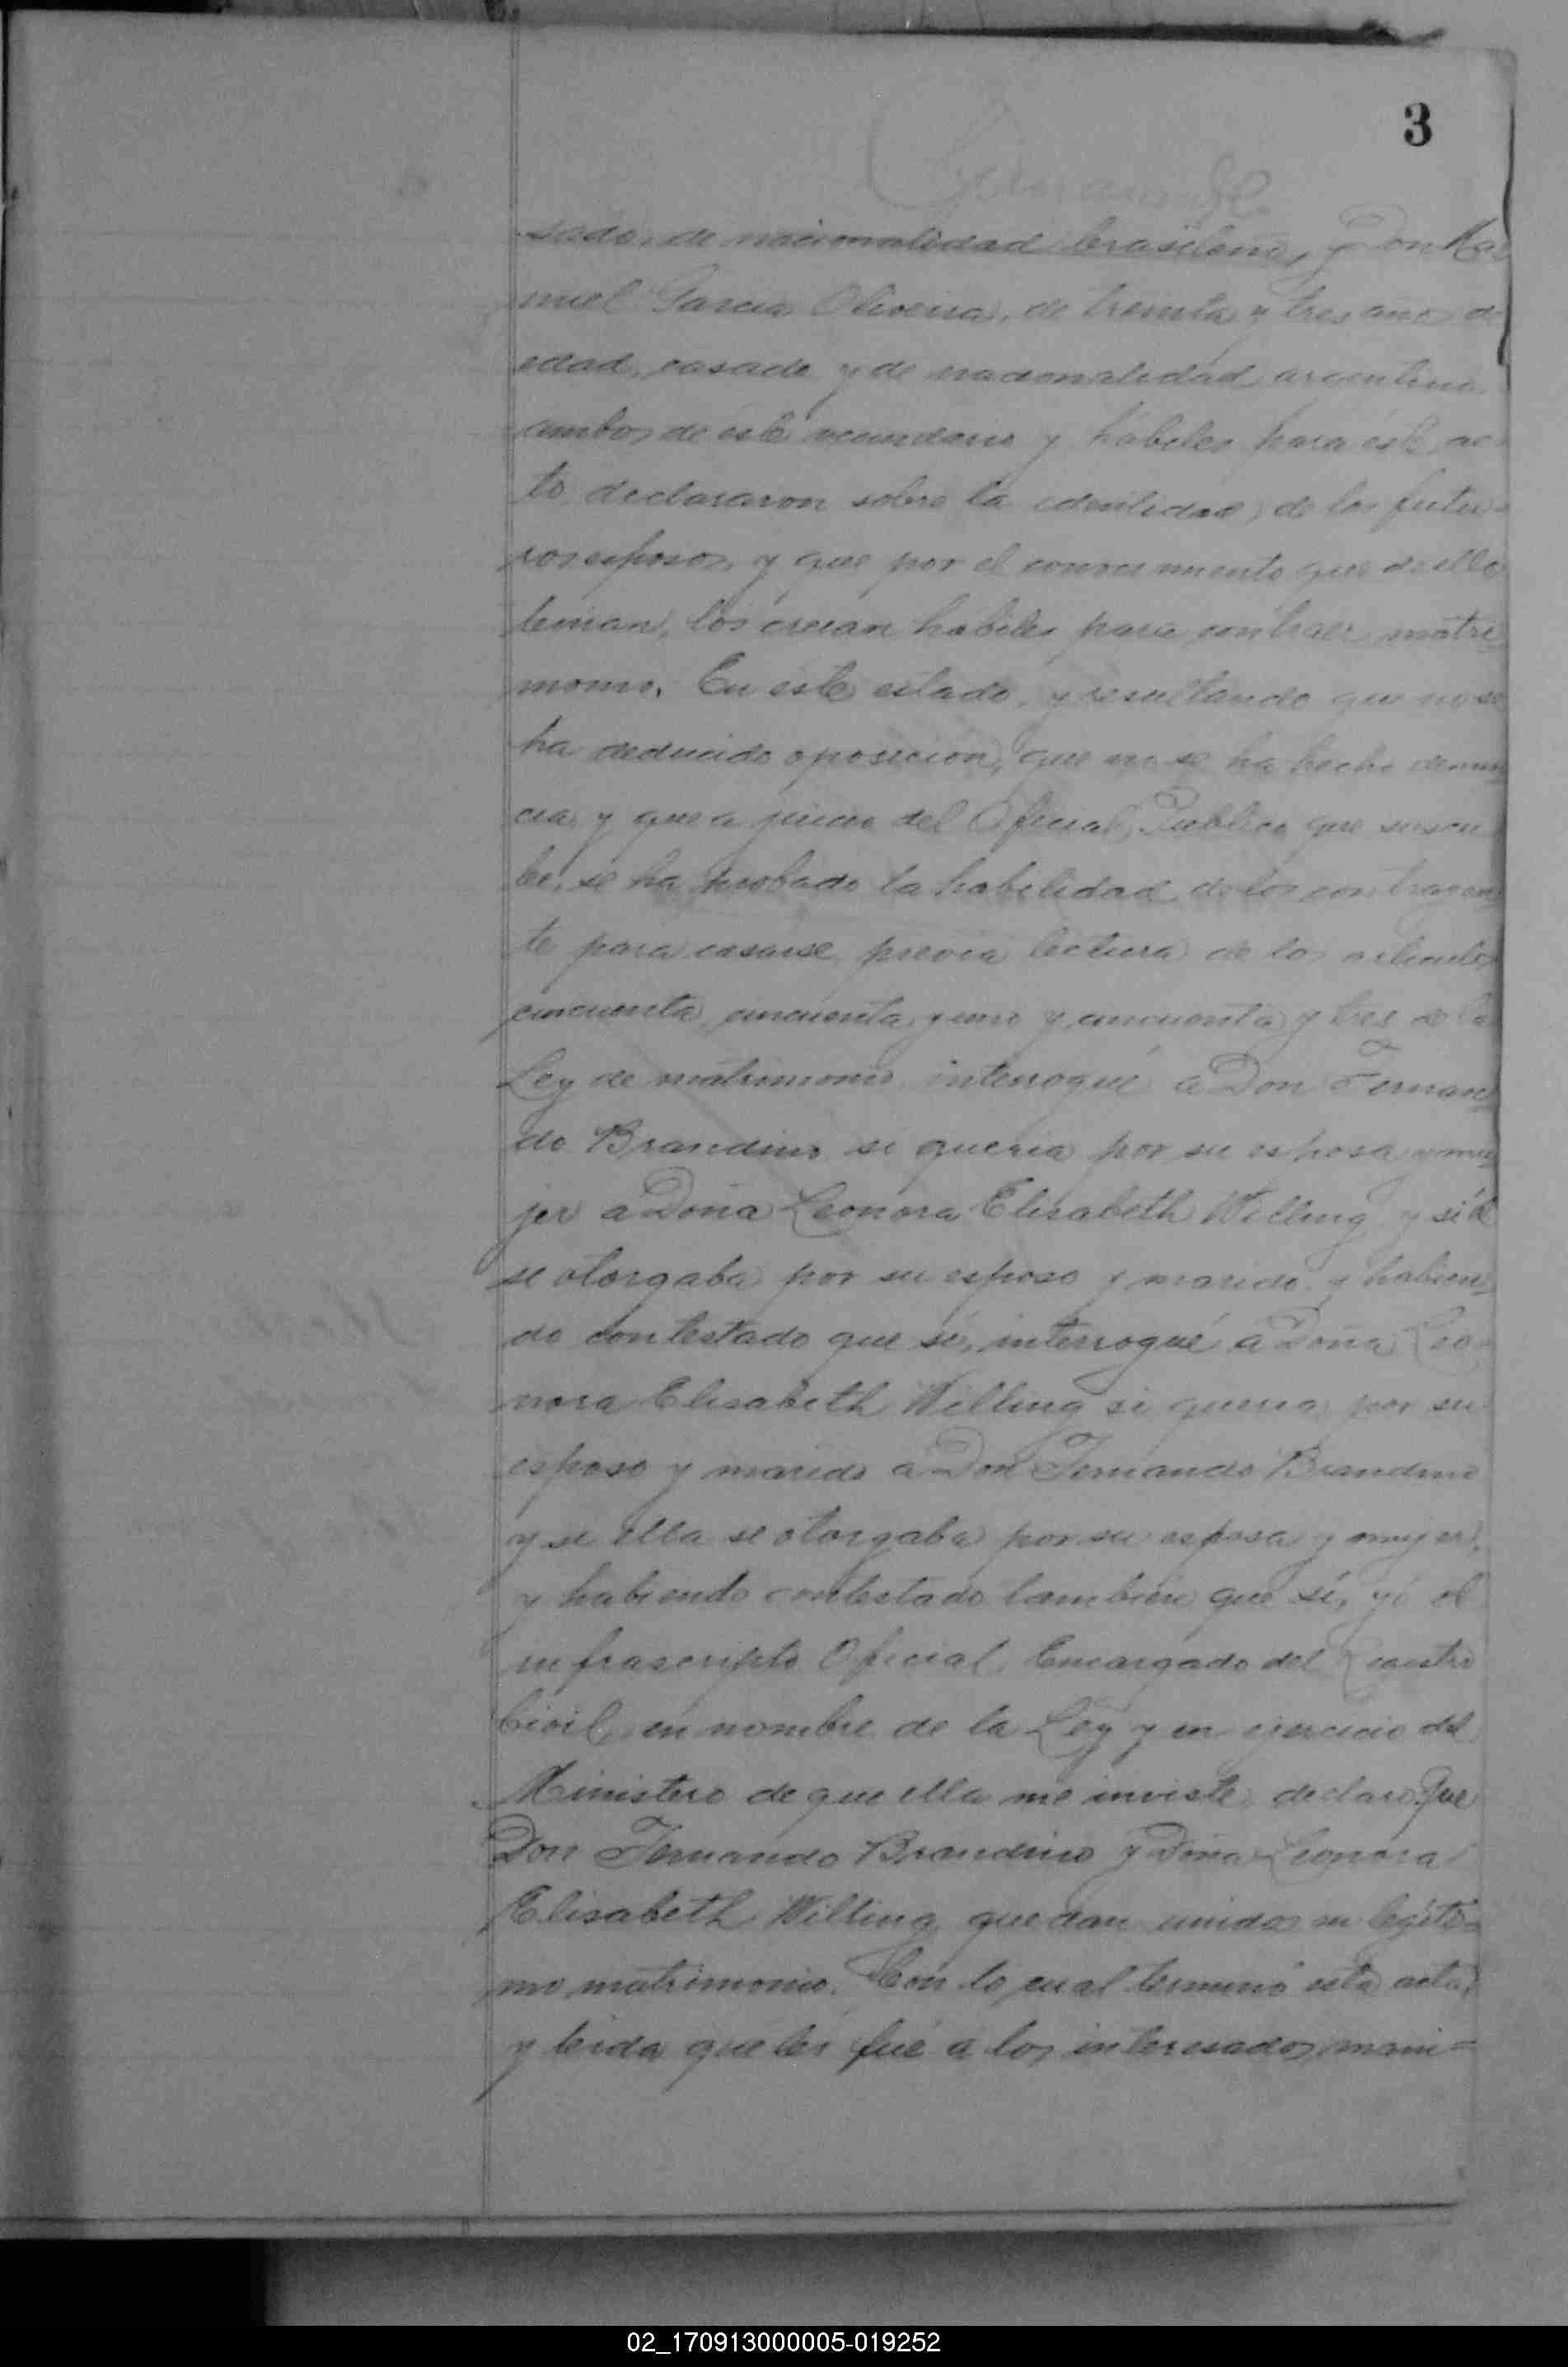 3
sado, de nacionalidad brasileña, y Don Ma=
nuel Garcia Oliveira, de treinta y tres años de
edad, casado y de nacionalidad argentina
ambos de éste vecindario y hábiles para éste ac=
to declararon sobre la identidad de los futu=
ros esposos, y que por el conocimiento que de ellos
tenian, los creian habiles para contraer matri
monio. En éste estado, y resultando que no se
ha deducido oposicion, que no se ha hecho denun
cia y que a juicio del Oficial Publico que suscri
be, se ha probado la habilidad de los contrayen
te para casarse previa lectura de los articulos
cincuenta, cincuenta y uno y cincuenta y tres de la
Ley de matrimonio interrogué a Don Fernan
do Brandino si queria por su esposa y mu
jer a Doña Leonora Elisabeth Willing y si él
se otorgaba por su esposo y marido y habien
do contestado que sí, interrogué a Doña Leo=
nora Elisabeth Willing si queria por su
esposo y marido a Don Fernando Brandino
y si ella se otorgaba por su esposa y mujer,
y habiendo contestado tambien que sí, yó el
infrascripto Oficial Encargado del Registro
Civil, en nombre de la Ley y en ejercicio del
Ministero de que ella me inviste declaro: Que
Don Fernando Brandino y Doña Leonora
Elisabeth Willing quedan unidos en legiti=
mo matrimonio. Con lo cual terminó esta acta,
y leida que les fué a los interesados mani=
02_170913000005-019252